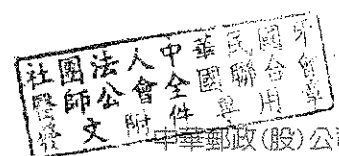 社團法人中華民國
醫師公會全國聯合會
發文附件專用章
中華郵政(股)公